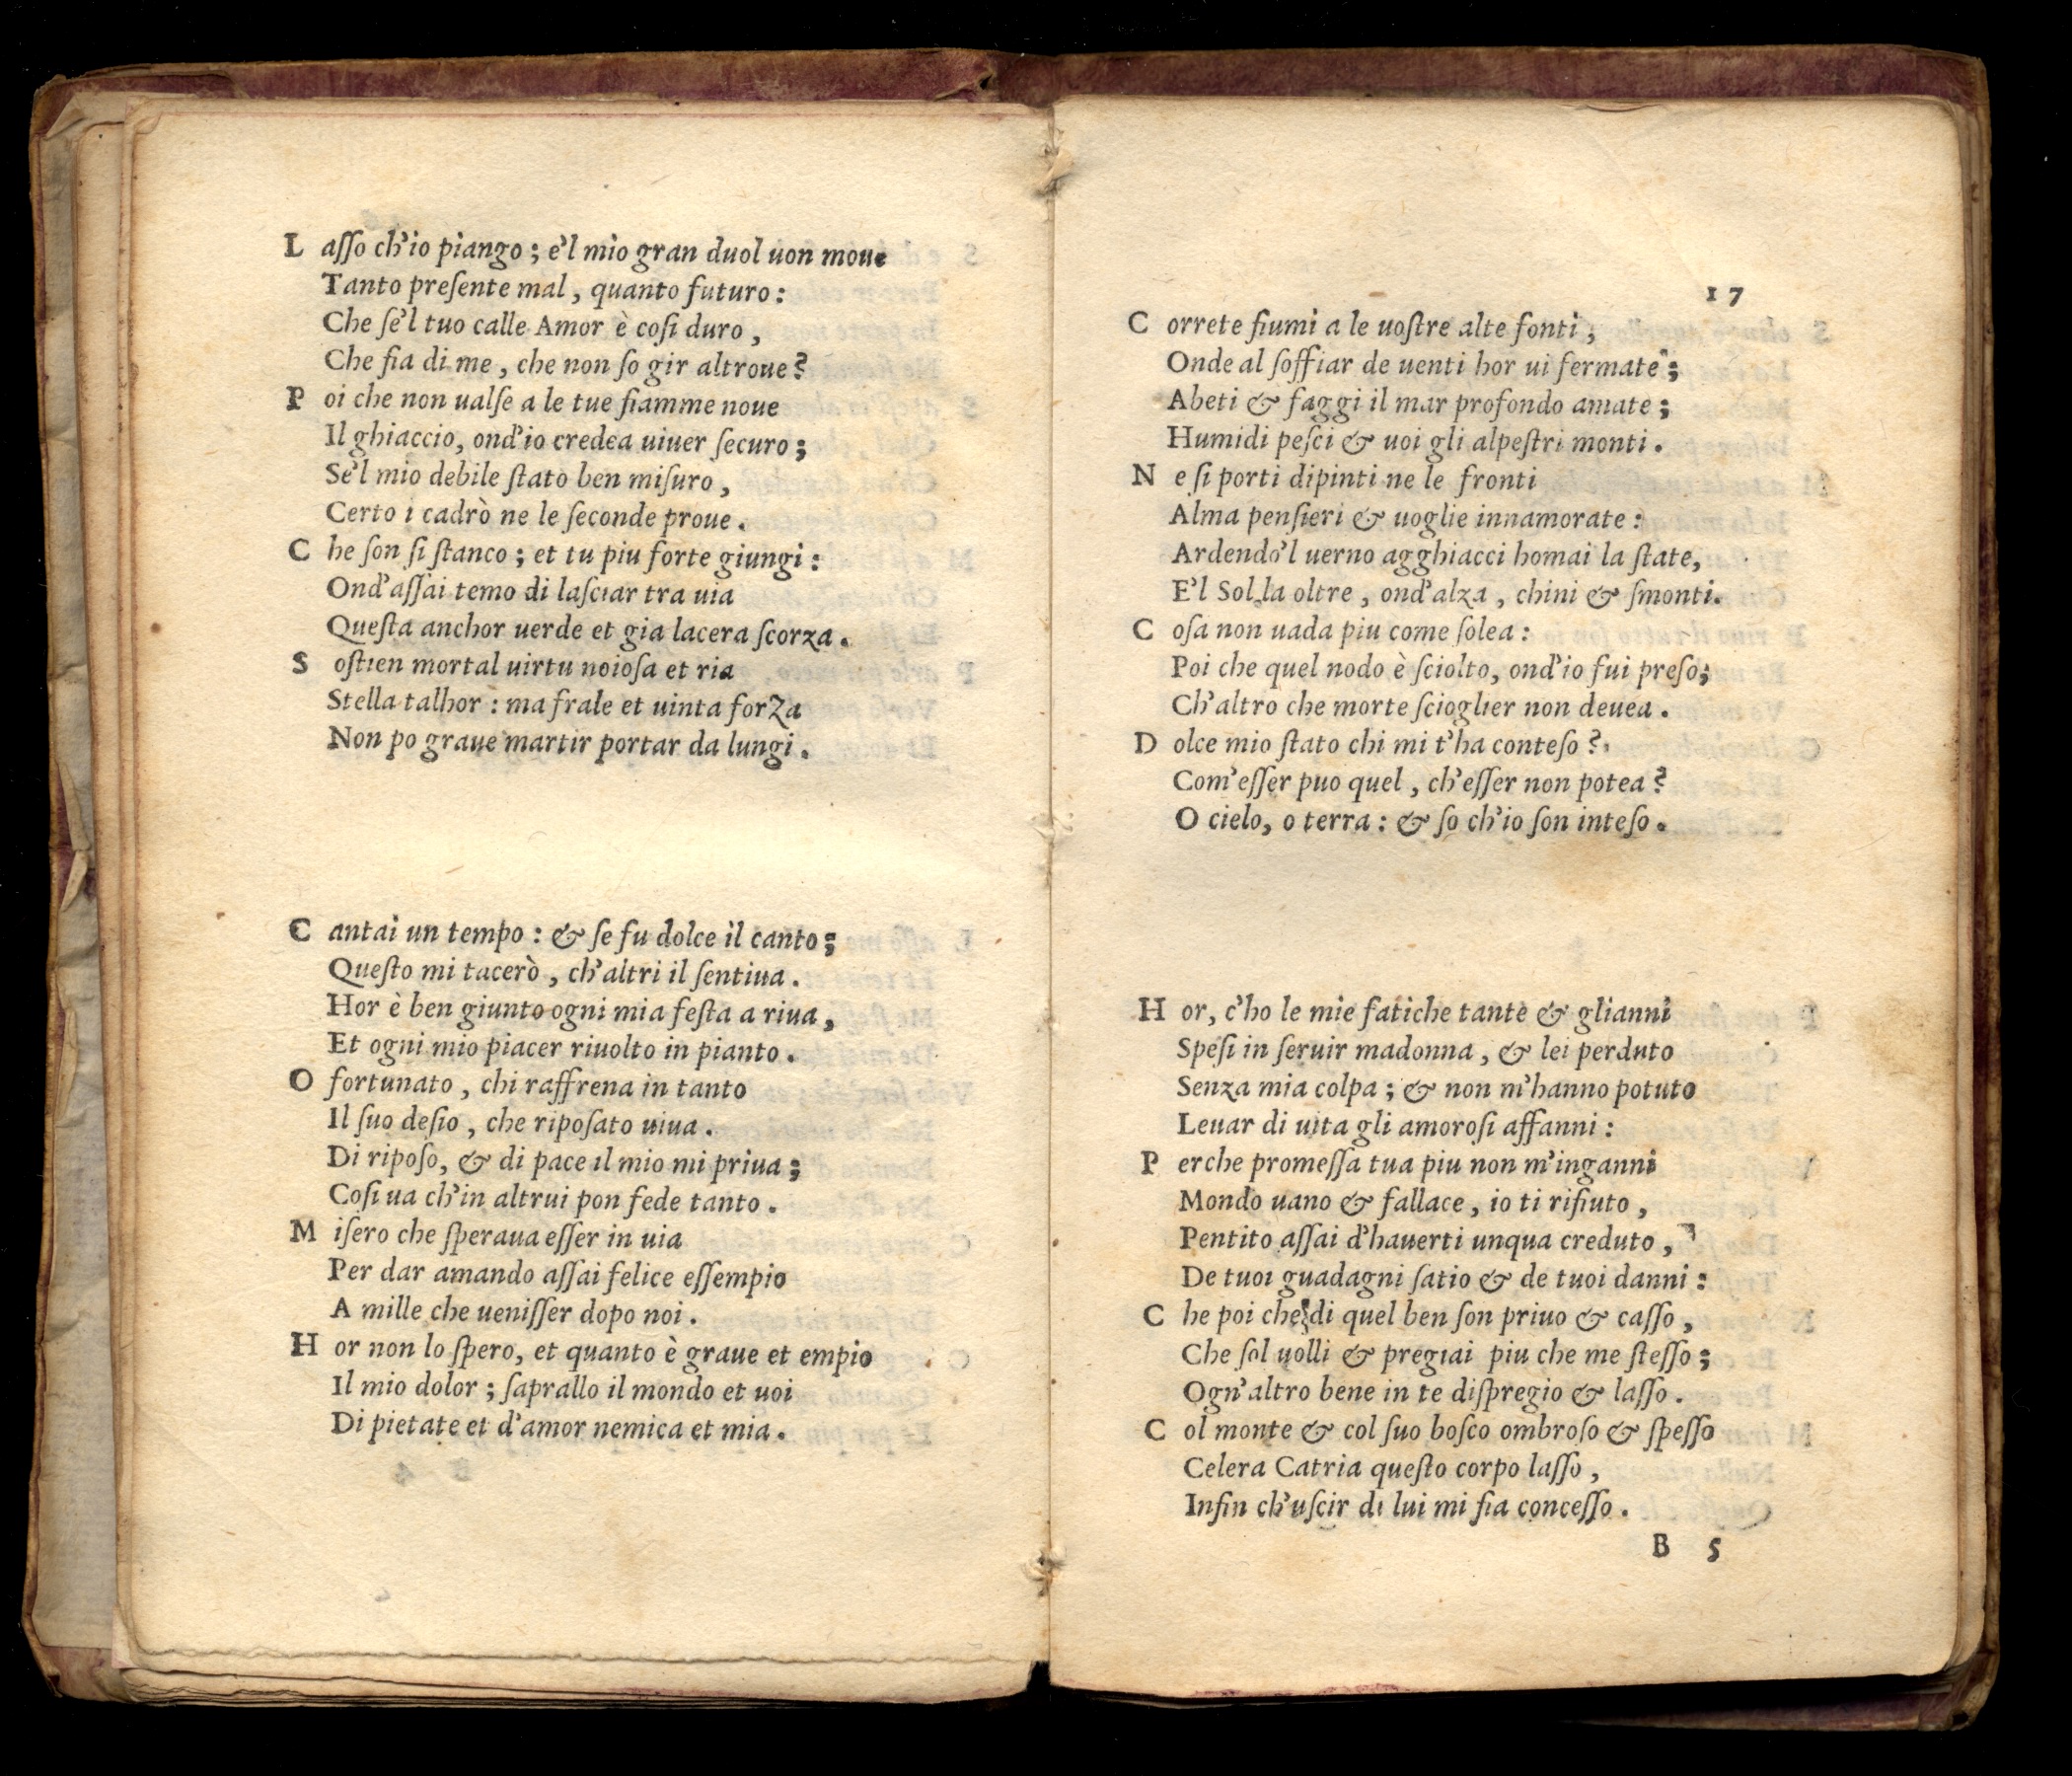 L asso ch'io piango; e'l mio gran duol uon moue
Tanto presente mal, quanto futuro:
Che se'l tuo calle Amor è cosi duro,
Che fia di me, che non so gir altroue?
P oi che non ualse a le tue fiamme noue
Il ghiaccio, ond'io credea uiuer securo;
Se'l mio debile stato ben misuro,
Certo i cadrò ne le seconde proue.
C he son si stanco; et tu piu forte giungi:
Ond'assai temo di lasciar tra uia
Questa anchor uerde et gia lacera scorza.
S ostien mortal uirtu noiosa et ria
Stella talhor: ma frale et uinta forZa
Non po graue martir portar da lungi.
C antai un tempo: & se fu dolce il canto;
Questo mi tacerò, ch'altri il sentiua.
Hor è ben giunto ogni mia festa a riua,
Et ogni mio piacer riuolto in pianto.
O fortunato, chi raffrena in tanto
Il suo desio, che riposato uiua.
Di riposo, & di pace il mio mi priua;
Cosi ua ch'in altrui pon fede tanto.
M isero che speraua esser in uia
Per dar amando assai felice essempio
A mille che uenisser dopo noi.
H or non lo spero, et quanto è graue et empio
Il mio dolor; saprallo il mondo et uoi
Di pietate et d'amor nemica et mia.
17
C orrete fiumi a le uostre alte fonti;
Onde al soffiar de uenti hor ui fermate;
Abeti & faggi il mar profondo amate;
Humidi pesci & uoi gli alpestri monti.
N e si porti dipinti ne le fronti
Alma pensieri & uoglie innamorate:
Ardendo'l uerno agghiacci homai la state,
E'l Sol la oltre, ond'alza, chini & smonti.
C osa non uada piu come solea:
Poi che quel nodo è sciolto, ond'io fui preso;
Ch'altro che morte scioglier non deuea.
D olce mio stato chi mi t'ha conteso?
Com'esser puo quel, ch'esser non potea?
O cielo, o terra: & so ch'io son inteso.
H or, c'ho le mie fatiche tante & glianni
Spesi in seruir madonna, & lei perduto
Senza mia colpa; & non m'hanno potuto
Leuar di uita gli amorosi affanni:
P erche promessa tua piu non m'inganni
Mondo uano & fallace, io ti rifiuto,
Pentito assai d'hauerti unqua creduto,
De tuoi guadagni satio & de tuoi danni:
C he poi che di quel ben son priuo & casso,
Che sol uolli & pregiai piu che me stesso;
Ogn'altro bene in te dispregio & lasso.
C ol monte & col suo bosco ombroso & spesso
Celera Catria questo corpo lasso,
Infin ch'uscir di lui mi fia concesso.
B 5